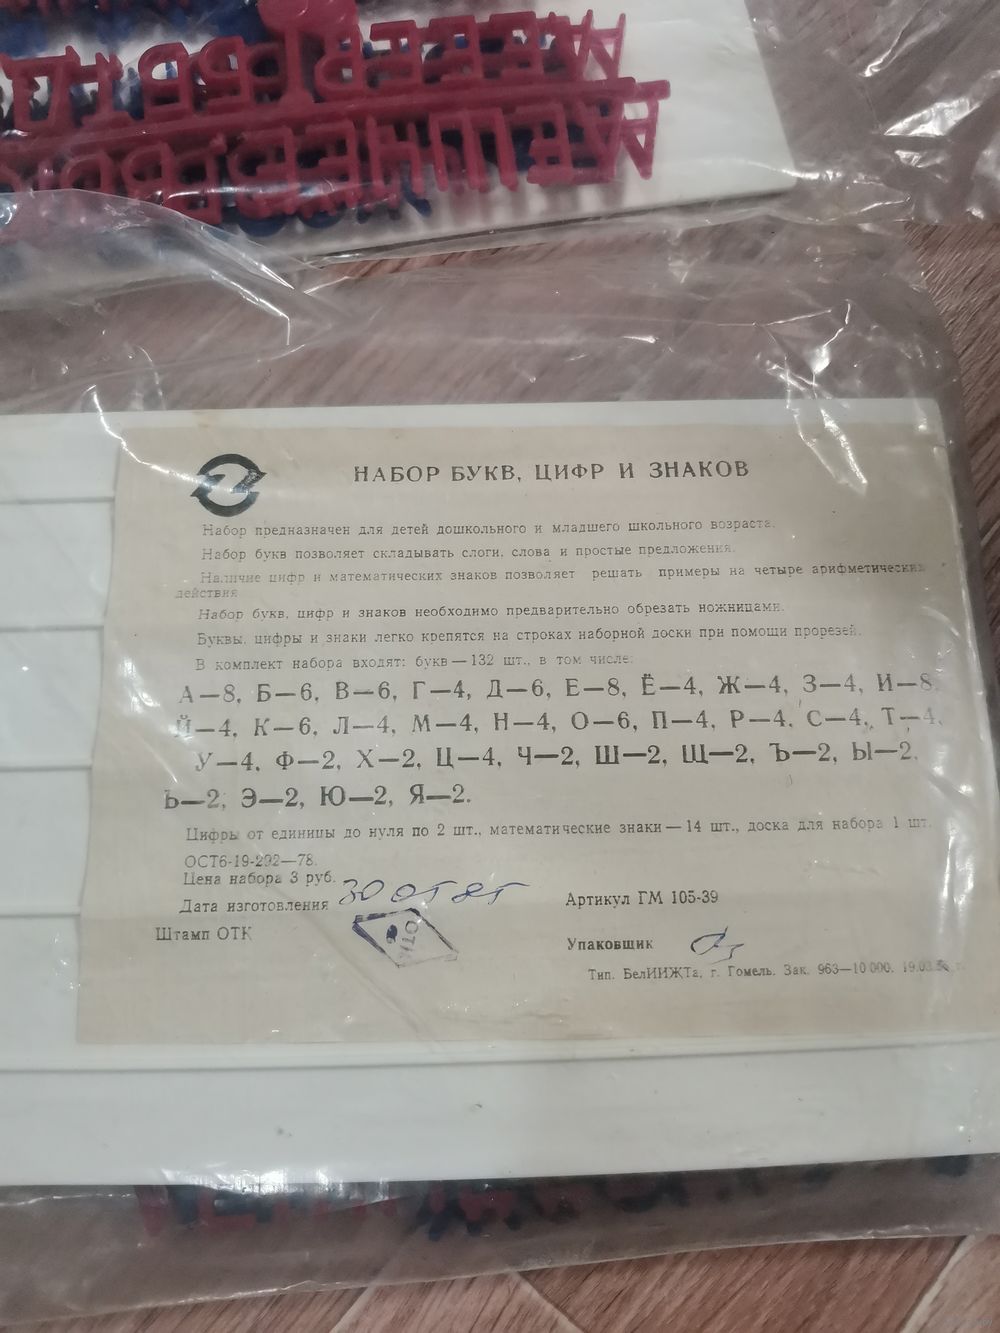 НАБОР БУКВ, ЦИФР И ЗНАКОВ
Набор предназначен для детей дошкольного и младшего школьного возраста.
Набор букв позволяет складывать слоги, слова и простые предложения.
Наличие цифр и математических знаков позволяет решать примеры на четыре арифметических
действия
Набор букв, цифр и знаков необходимо предварительно обрезать ножницами.
Буквы, цифры и знаки легко крепятся на строках наборной доски при помощи прорезей.
В комплект набора входят: букв — 132 шт., в том числе:
А—8, Б—6, В—6, Г—4, Д—6, Е—8, Ё—4, Ж—4, З—4, И—8,
Й—4, К—6, Л—4, М—4, Н—4, О—6, П—4, Р—4, С—4, Т—4,
У—4, Ф—2, Х—2, Ц—4, Ч—2, Ш—2, Щ—2, Ъ—2, Ы—2,
Ь—2, Э—2, Ю—2, Я—2.
Цифры от единицы до нуля по 2 шт., математические знаки — 14 шт., доска для набора 1 шт.
ОСТ6-19-202—78.
Цена набора 3 руб.
Дата изготовления 30
Артикул ГМ 105-39
Штамп ОТК
Упаковщик
Тип. БелИИЖТа, г. Гомель. Зак. 963—10 000.